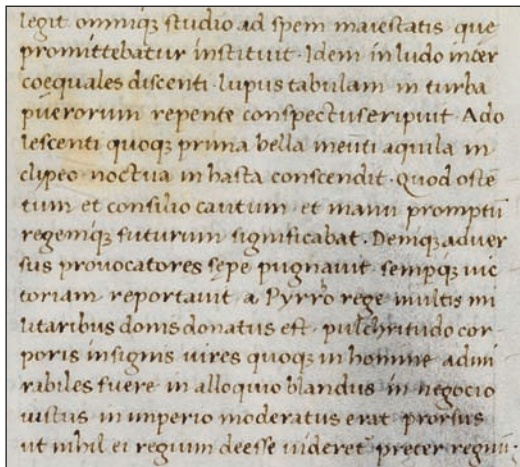 legit omniq; studio ad spem maiestatis que
promittebatur instituit. Idem in ludo inter
coequales discenti. lupus tabulam in turba
puerorum repente conspectus eripuit. Ado
lescenti quoq; prima bella ineuti aquila in
clipeo. noctua in hasta conscendit. Quod oste
tum et consilio cautum et manu promptū
regemq; futurum significabat. Deniq; adver
sus provocatores sępe pugnavit. sempq; vic
toriam reportavit a Pyrro rege multis mi
litaribus donis donatus est. pulchritudo cor
poris insignis vires quoq; in homine admi
rabiles fuere in alloquio blandus in negocio
iustus in imperio moderatus erat prorsus
ut nihil ei regium deesse videret preter regnū.